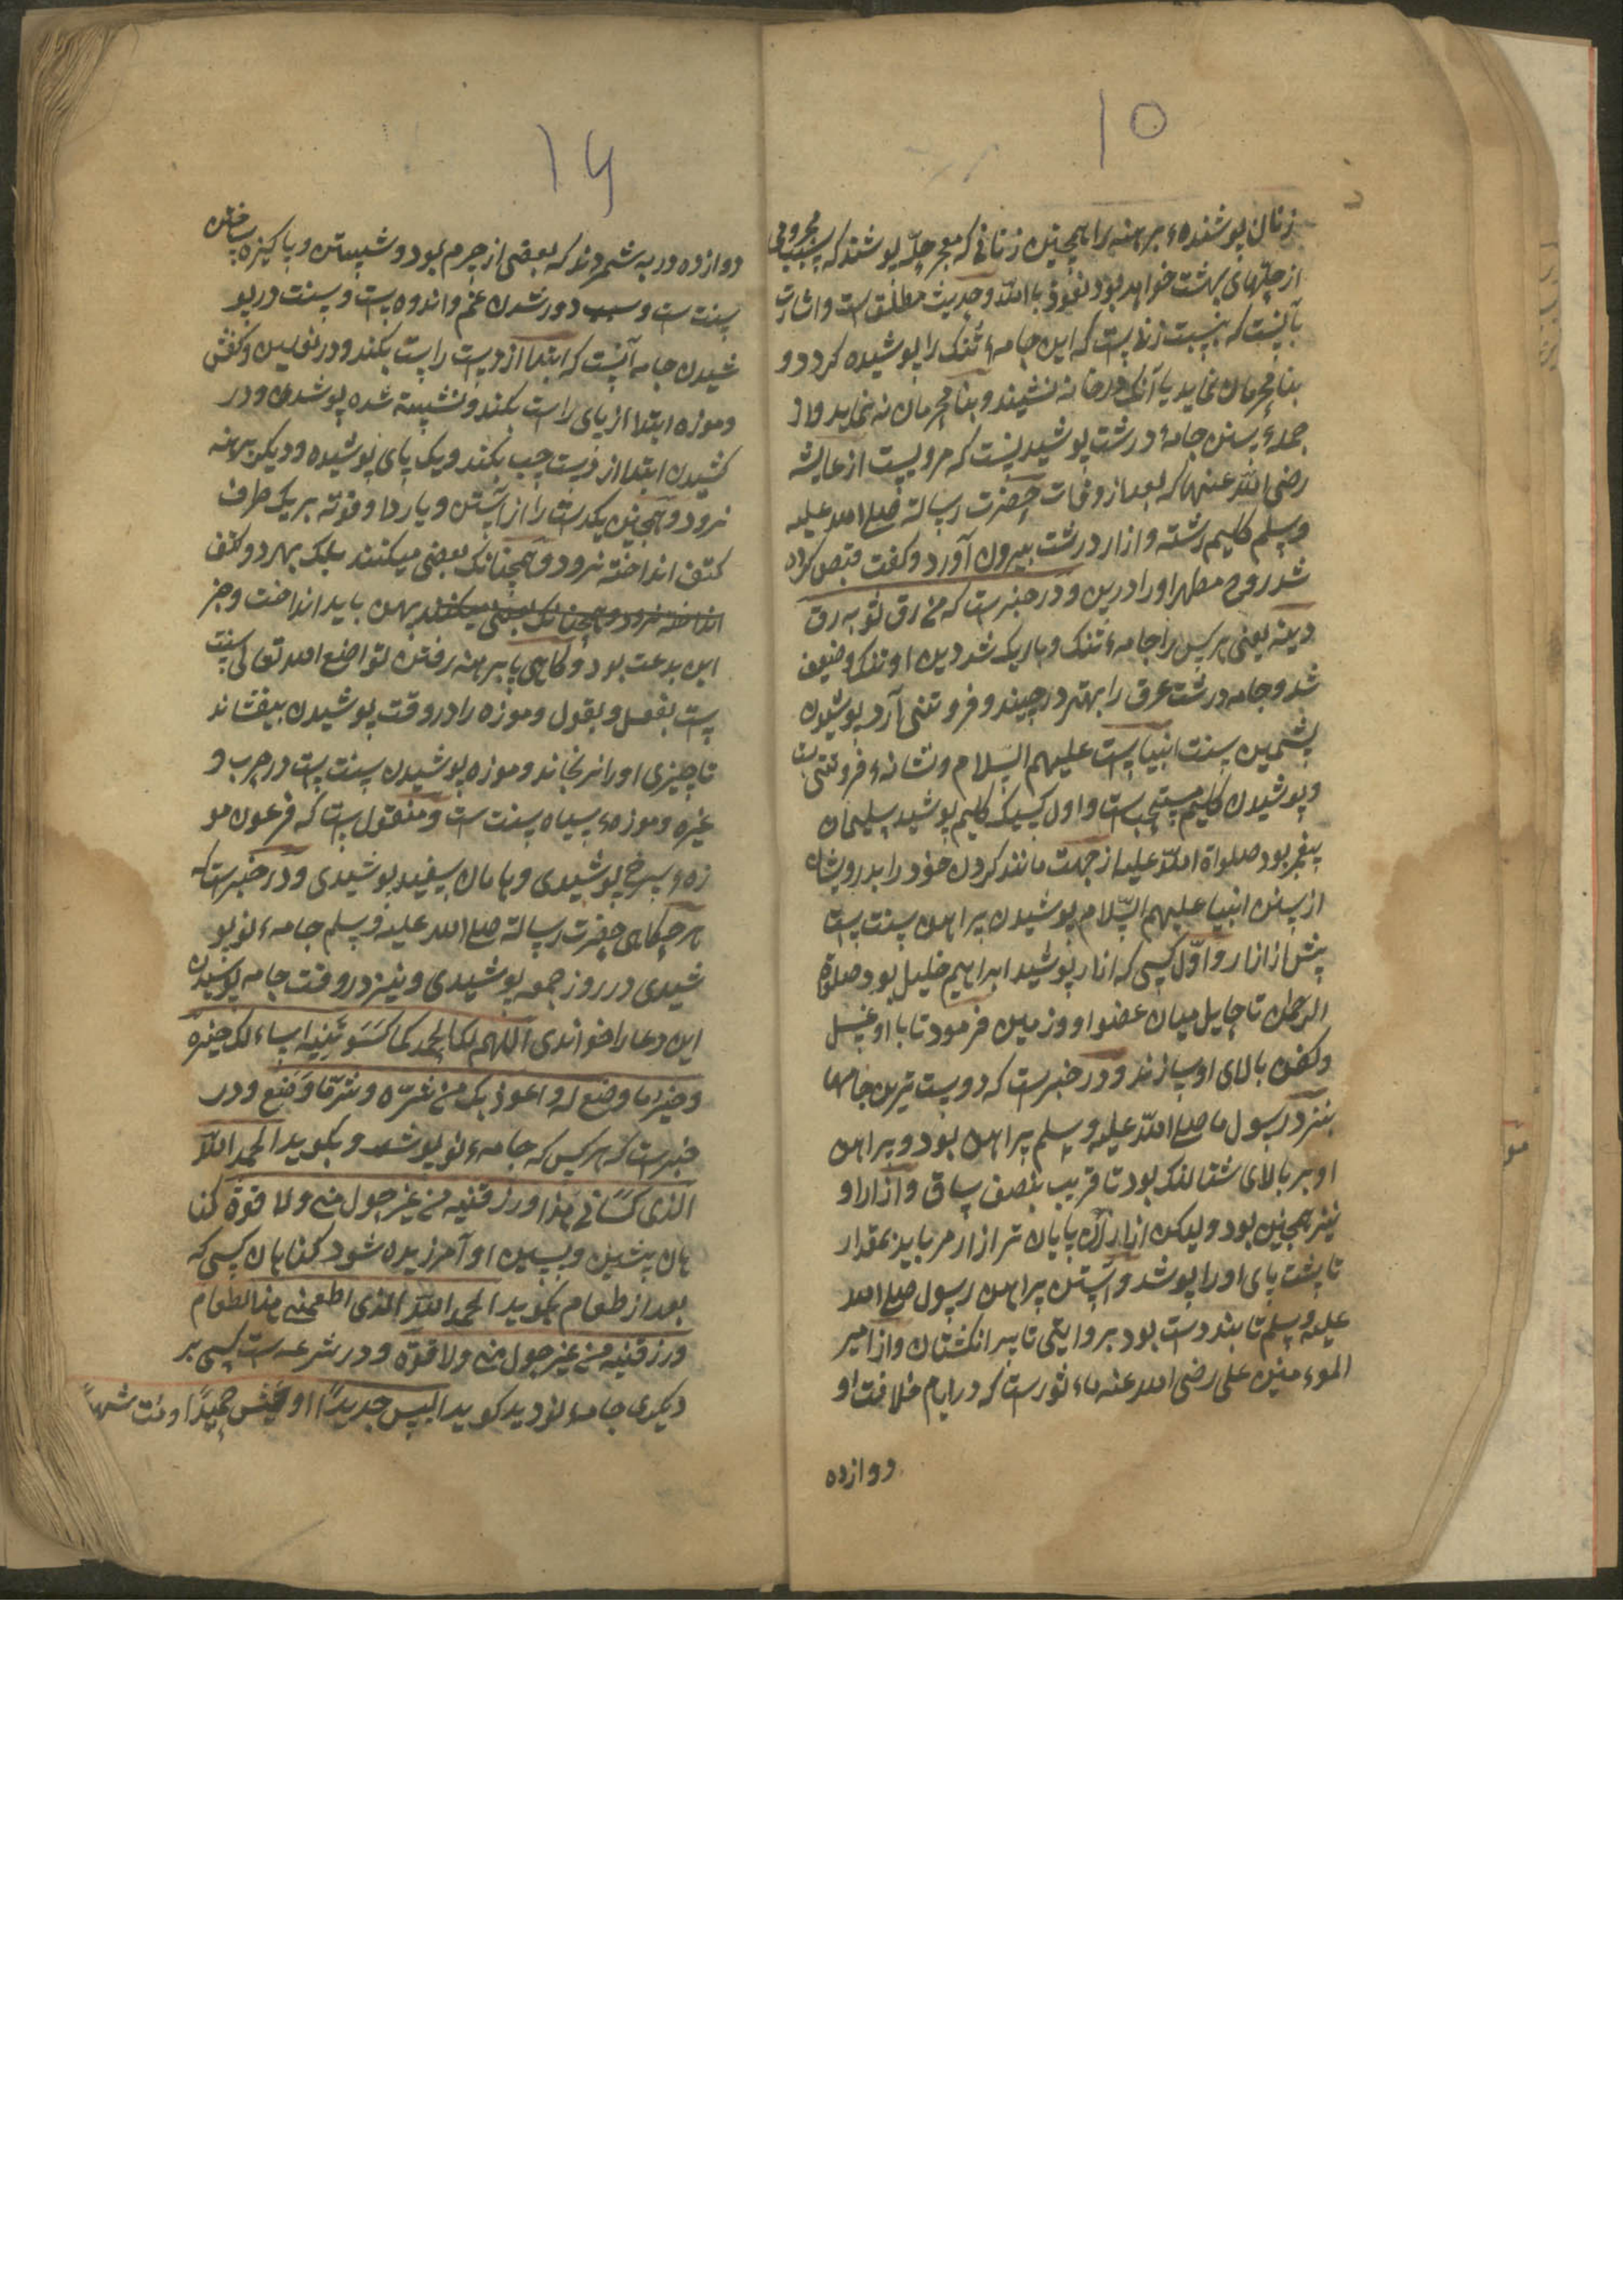 ۱۵
زنان پوشنده برهنه را همچنین زنانی که معجر حلّه پوشند که سبب محرومی
از حلّهای بهشت خواهد بود نعوذ باالله و حدیث مطلق است و اشارت
بآنست که بنسبت زنانست که این جامهٔ تنک را پوشیده کردد و
بنامحرمان نماید یا آنک در خانه نشیند و بنامحرمان نه نماید و از
جملهٔ سنن جامهٔ درشت پوشیدنیست که مرویست از عایشه
رضی الله عنها که بعد از وفات حضرت رسالة صلی الله علیه
وسلم کلیم رشته و ازار درشت بیرون آورد و کفت قبص کرده
شد روح مطهر او را درین و در خبرست که من رق ثوبه رق
دینه یعنی هر کس را جامهٔ تنک و باریک شد دین او تنک و ضعیف
شد و جامه درشت عرق را بهتر در چیند و فروتنی آرد پوشیدن
پشمین سنت انبیاست علیهم السّلام و نشانهٔ فروتنی است
و پوشیدن کلیم مستحبست و اول کسیکه کلیم پوشید سلیمان
پیغمبر بود صلواة الله علیه از جهت مانند کردن خود را بدرویشان
از سنن انبیا علیهم السّلام پوشیدن پراهن سنت ست
پیش از ازار و اوّل کسی که ازار پوشید ابراهیم خلیل بود صلوة
الرحمن تا حایل میان عضو او و زمین فرمود تا با او غسل
و کفن بالای او سازند و در خبرست که دوست ترین جامها
بنزد رسول ما صلی الله علیه وسلم پراهن بود و پراهن
او بر بالای شتالنک بود تا قریب بنصف ساق و ازار او
نیز همچنین بود ولیکن ازار زنان پایان تر از ازار مرد باید بمقدار
تا پشت پای او را پوشد و آستین پراهن رسول صلی الله
علیه وسلم تا بند دست بود بروایتی تا سر انکشتان و از امیر
الموءمنین علی رضی الله عنه ماءثورست که در ایام خلافت او
دوازده
۱۶
دوازده وربه شمردند که بعضی از چرم بود و شستن و پاکیزه ساختن
سنت ست و سبب دور شدن غم و اندوه ست و سنت در پو
شیدن جامه آنست که ابتدا از دست راست بکند و در نعلین و کفش
و موزه ابتدا از پای راست بکند و نشسته شده پوشد و در
کشیدن ابتدا از دست چپ بکند و یک پای پوشیده و دیکر برهنه
نرود و همچنین یکدست را از آستن و یا ردا و فوته بر یک طرف
کتف انداخته نرود و همچنانک بعضی میکنند بلک بهر دو کتف
انداخته نرود و همچنانک بعضی میکنند بهن باید انداخت و جز
این بدعت بود و کاهی پا برهنه رفتن تواضع الله تعالی سنت
ست بفعل و بقول و موزه را در وقت پوشیدن بیفشاند
تا چیزی او را نرنجاند و موزه پوشیدن سنت ست در حرب و
غیره و موزهٔ سیاه سنت ست و منقول ست که فرعون مو
زهٔ سرخ پوشیدی و هامان سفید پوشیدی و در خبرست که
هر جکاهی حضرت رسالة صلی الله علیه وسلم جامهٔ نو پو
شیدی در روز جمعه پوشیدی و نیز در وقت جامه پوشیدن
این دعا را خواندی اللهم لک الحمد کما کسوتنیه اساءلک خیره
و خیر ما وضع له و اعوذ بک من شرّه و شرّ ما وضع و در
خبرست که هر کس که جامهٔ نو پوشد و بکوید الحمد الله
الذی کسانی هذا و رزقنیه من غیر حول منی ولا قوة کنا
هان پیشین و پسین او آمرزیده شود کناهان کسی که
بعد از طعام بکوید الحمد الله الذی اطعمنی هذا الطعام
و رزقنیه من غیر حول منی ولا قوة و در شرعه ست کسی بر
دیکری جامهٔ نو دید کوید البس جدیدًا و عش حمیدًا و مت شهیدًا